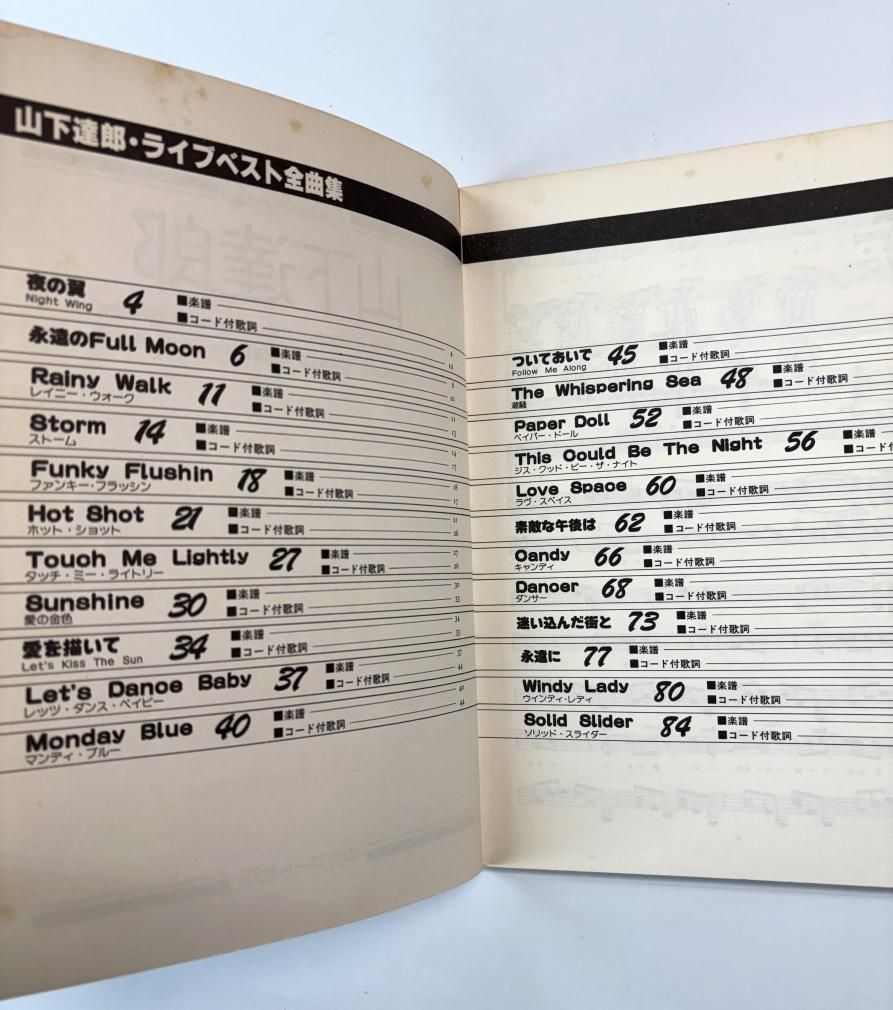 山下達郎・ライブベスト全曲集
夜の翼 4 ■楽譜
Night Wing ■コード付歌詞
永遠のFull Moon 6 ■楽譜
■コード付歌詞
Rainy Walk 11 ■楽譜
レイニー・ウォーク ■コード付歌詞
Storm 14 ■楽譜
ストーム ■コード付歌詞
Funky Flushin 18 ■楽譜
ファンキー・フラッシン ■コード付歌詞
Hot Shot 21 ■楽譜
ホット・ショット ■コード付歌詞
Touch Me Lightly 27 ■楽譜
タッチ・ミー・ライトリー ■コード付歌詞
Sunshine 30 ■楽譜
愛の金色 ■コード付歌詞
愛を描いて 34 ■楽譜
Let's Kiss The Sun ■コード付歌詞
Let's Dance Baby 37 ■楽譜
レッツ・ダンス・ベイビー ■コード付歌詞
Monday Blue 40 ■楽譜
マンディ・ブルー ■コード付歌詞
ついておいで 45 ■楽譜
Follow Me Along ■コード付歌詞
The Whispering Sea 48 ■楽譜
潮騒 ■コード付歌詞
Paper Doll 52 ■楽譜
ペイパー・ドール ■コード付歌詞
This Could Be The Night 56 ■楽譜
ジス・クッド・ビー・ザ・ナイト ■コード付
Love Space 60 ■楽譜
ラヴ・スペイス ■コード付歌詞
素敵な午後は 62 ■楽譜
■コード付歌詞
Candy 66 ■楽譜
キャンディ ■コード付歌詞
Dancer 68 ■楽譜
ダンサー ■コード付歌詞
迷い込んだ街と 73 ■楽譜
■コード付歌詞
永遠に 77 ■楽譜
■コード付歌詞
Windy Lady 80 ■楽譜
ウインディ・レディ ■コード付歌詞
Solid Slider 84 ■楽譜
ソリッド・スライダー ■コード付歌詞